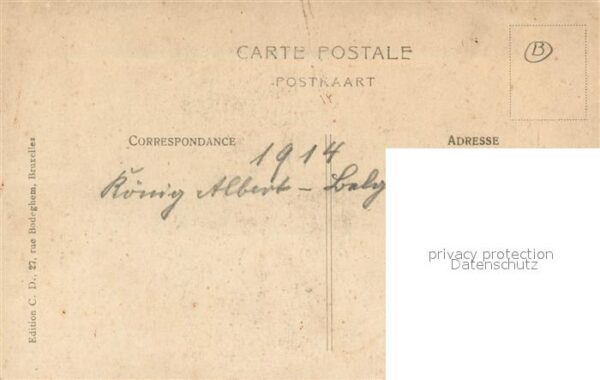 CARTE POSTALE
POSTKAART
B
CORRESPONDANCE
ADRESSE
1914
König Albert - Belg
privacy protection
Datenschutz
Edition C. D., 27, rue Bodeghem, Bruxelles